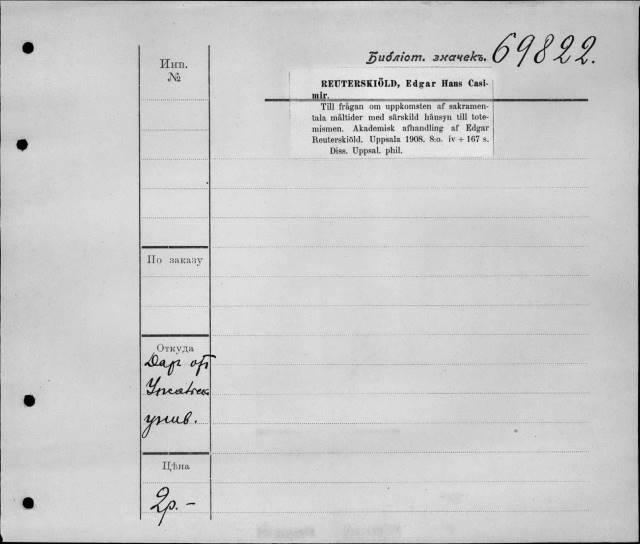 Библіот. значекъ. 69822.
Инв.
№
REUTERSKIÖLD, Edgar Hans Casi-
mir.
Till frågan om uppkomsten af sakramen-
tala måltider med särskild hänsyn till tote-
mismen. Akademisk afhandling af Edgar
Reuterskiöld. Uppsala 1908. 8:o. iv + 167 s.
Diss. Uppsal. phil.
По заказу
Откуда
Дар от
унив.
Цѣна
2р.-